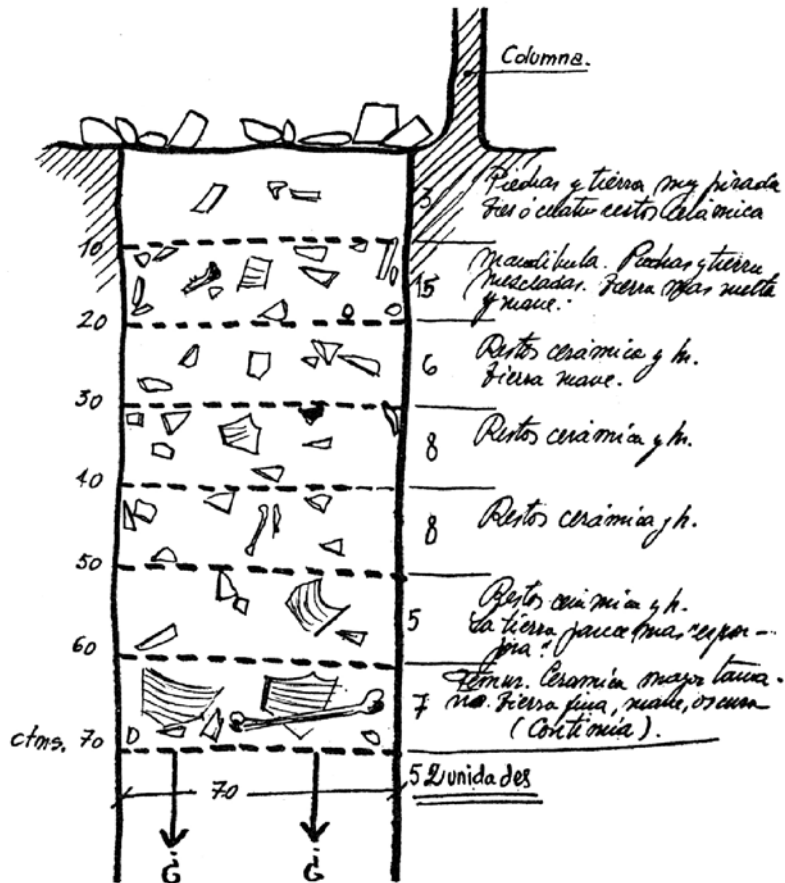 Columna.
3
Piedras y tierra muy pisada
restos cerámica
10
15
mandíbula. Piedras y tierra
mezcladas. Tierra mas suelta
y suave.
20
6
Restos cerámica y h.
Tierra suave.
30
8
Restos cerámica y h.
40
8
Restos cerámica y h.
50
5
Restos cerámica y h.
La tierra parece mas "espon-
josa"
60
7
Femur. Ceramica mayor tama-
ño. Tierra fina, suave, oscura
(Continúa).
ctms. 70
70
52 unidades
¿ ¿